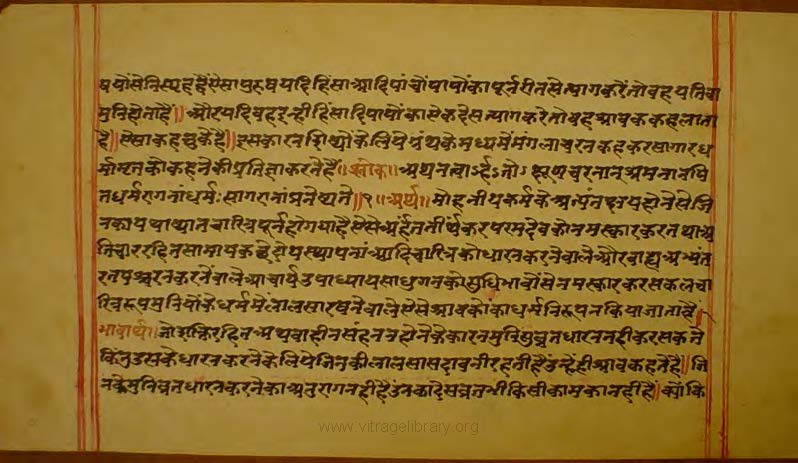 षयोंसे निस्पृह हैं ऐसा पुरुष यदि हिंसा आदि पांचों पापोंका पूर्न रीतसे त्याग करें तो वह यति वा
मुनि होता हैं॥ और यदि वह इन्ही हिंसादि पापोंका सेक देस त्याग करे तो वह श्रावक कहलाता
है॥ सेसा कह चुके हैं॥ इस कारन शिष्यों के लिये ग्रंथके मध्यमें मंगलाचरन कहकर सागारध
र्मामृत को कहनेकी प्रतिज्ञा करते हैं॥ श्लोक॥ अथ नत्वाऽर्हतोऽक्षूणचरनान् श्रमनानपि
तधर्मरागनां धर्मः सागारानां प्रनेष्यते॥१॥ अर्थ॥ मोहनीय कर्मके अत्यंत क्षय होनेसे जि
नका यथाख्यात चारित्र पूर्न होगया है सेसे अर्हंत तीर्थंकर परम देवको नमस्कार कर तथा अ
तिचार रहित सामायक छेदोपस्थापनां आदि चारित्रको धारन करनेवाले और बाह्य अभ्यंत
र तपश्चरन करनेवाले आचार्य उपाध्याय साधु गनको सुधि भावोंसे नमस्कार कर सकल चा
रित्र रूप मुनियोंके धर्ममें लालसा रखनेवाले ऐसे श्रावकोंका धर्म निरूपन किया जाता हैं॥
भावार्थ॥ जो शक्ति रहित अथवा हीन संहनन होनेके कारन मुनि व्रत धारन नही कर सकते
किंतु उसके धारन करनेके लिये जिनकी लालसा सदा बनी रहती है उन्हे ही श्रावक कहते है॥ जि
नके मुनि व्रत धारन करनेका अनुराग नही है उनका देस व्रत भी किसी कामका नहीं हैं॥ क्योंकि
www.vitragelibrary.org